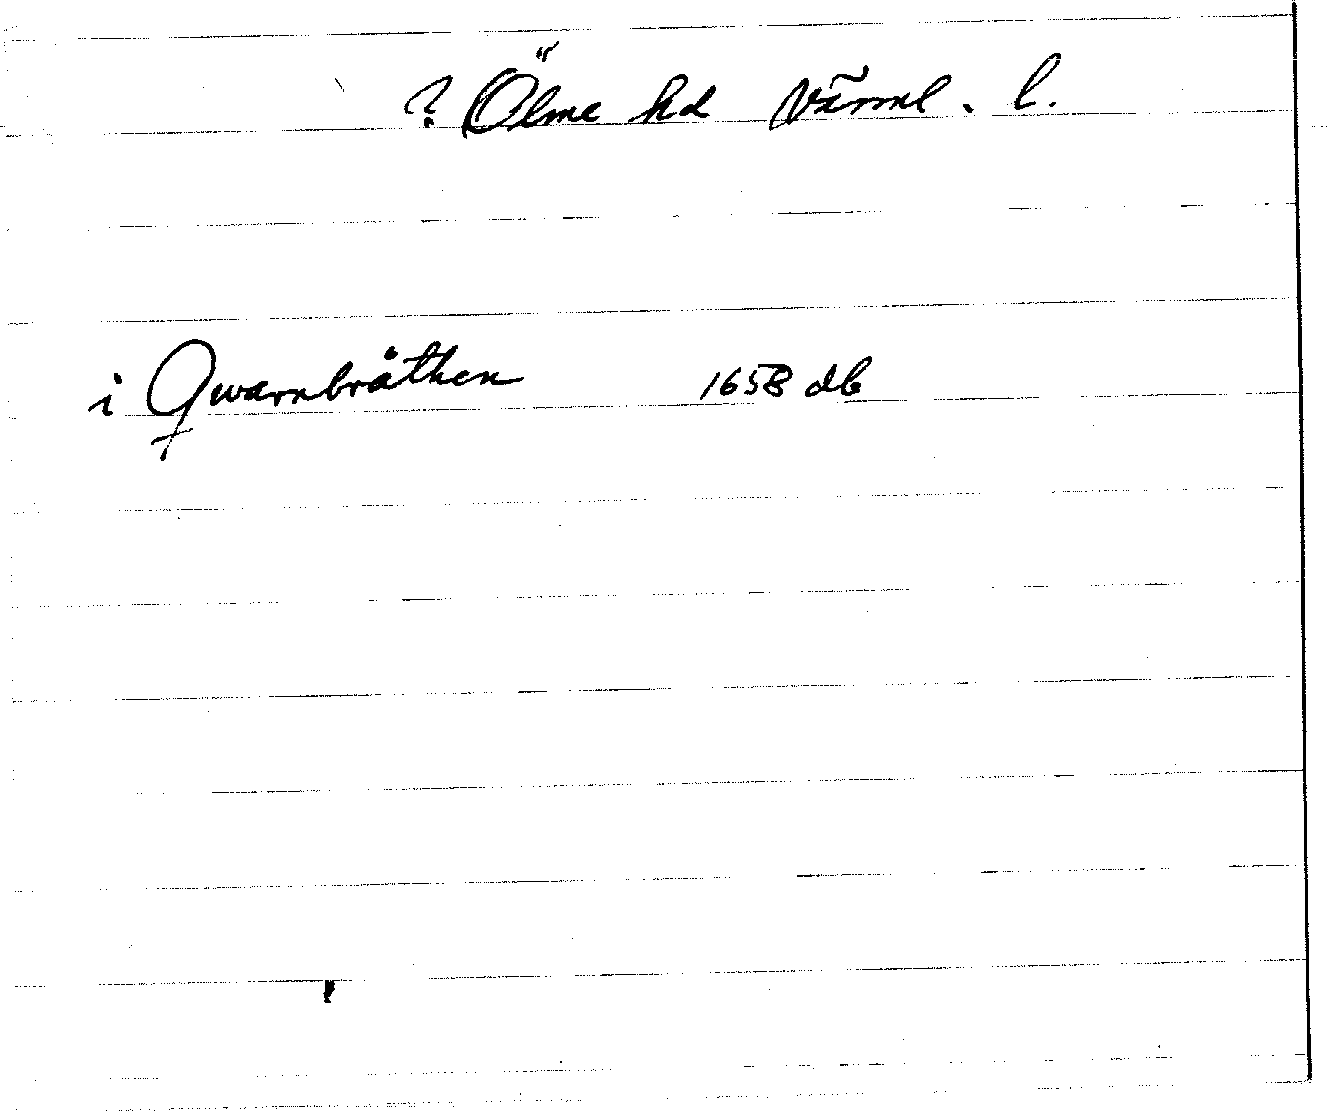 ? Ölme hd Värml. l.
i Qwarnbråthen 1658 db